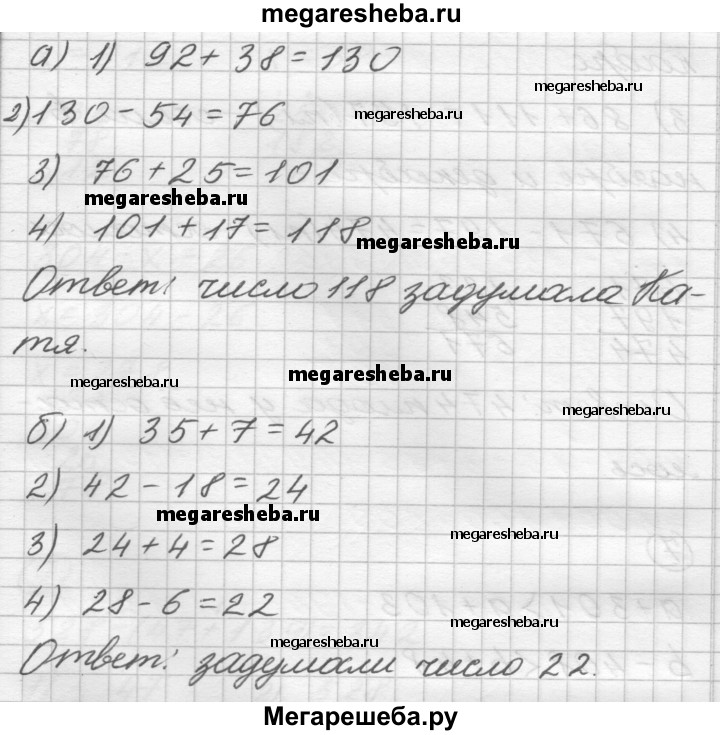 megaresheba.ru
а) 1) 92 + 38 = 130
megaresheba.ru
2) 130 - 54 = 76
megaresheba.ru
3) 76 + 25 = 101
megaresheba.ru
4) 101 + 17 = 118
megaresheba.ru
Ответ: число 118 задумала Ка-
тя.
megaresheba.ru
megaresheba.ru
megaresheba.ru
б) 1) 35 + 7 = 42
2) 42 - 18 = 24
megaresheba.ru
3) 24 + 4 = 28
megaresheba.ru
4) 28 - 6 = 22
megaresheba.ru
megaresheba.ru
Ответ: задумали число 22.
Мегарешеба.ру